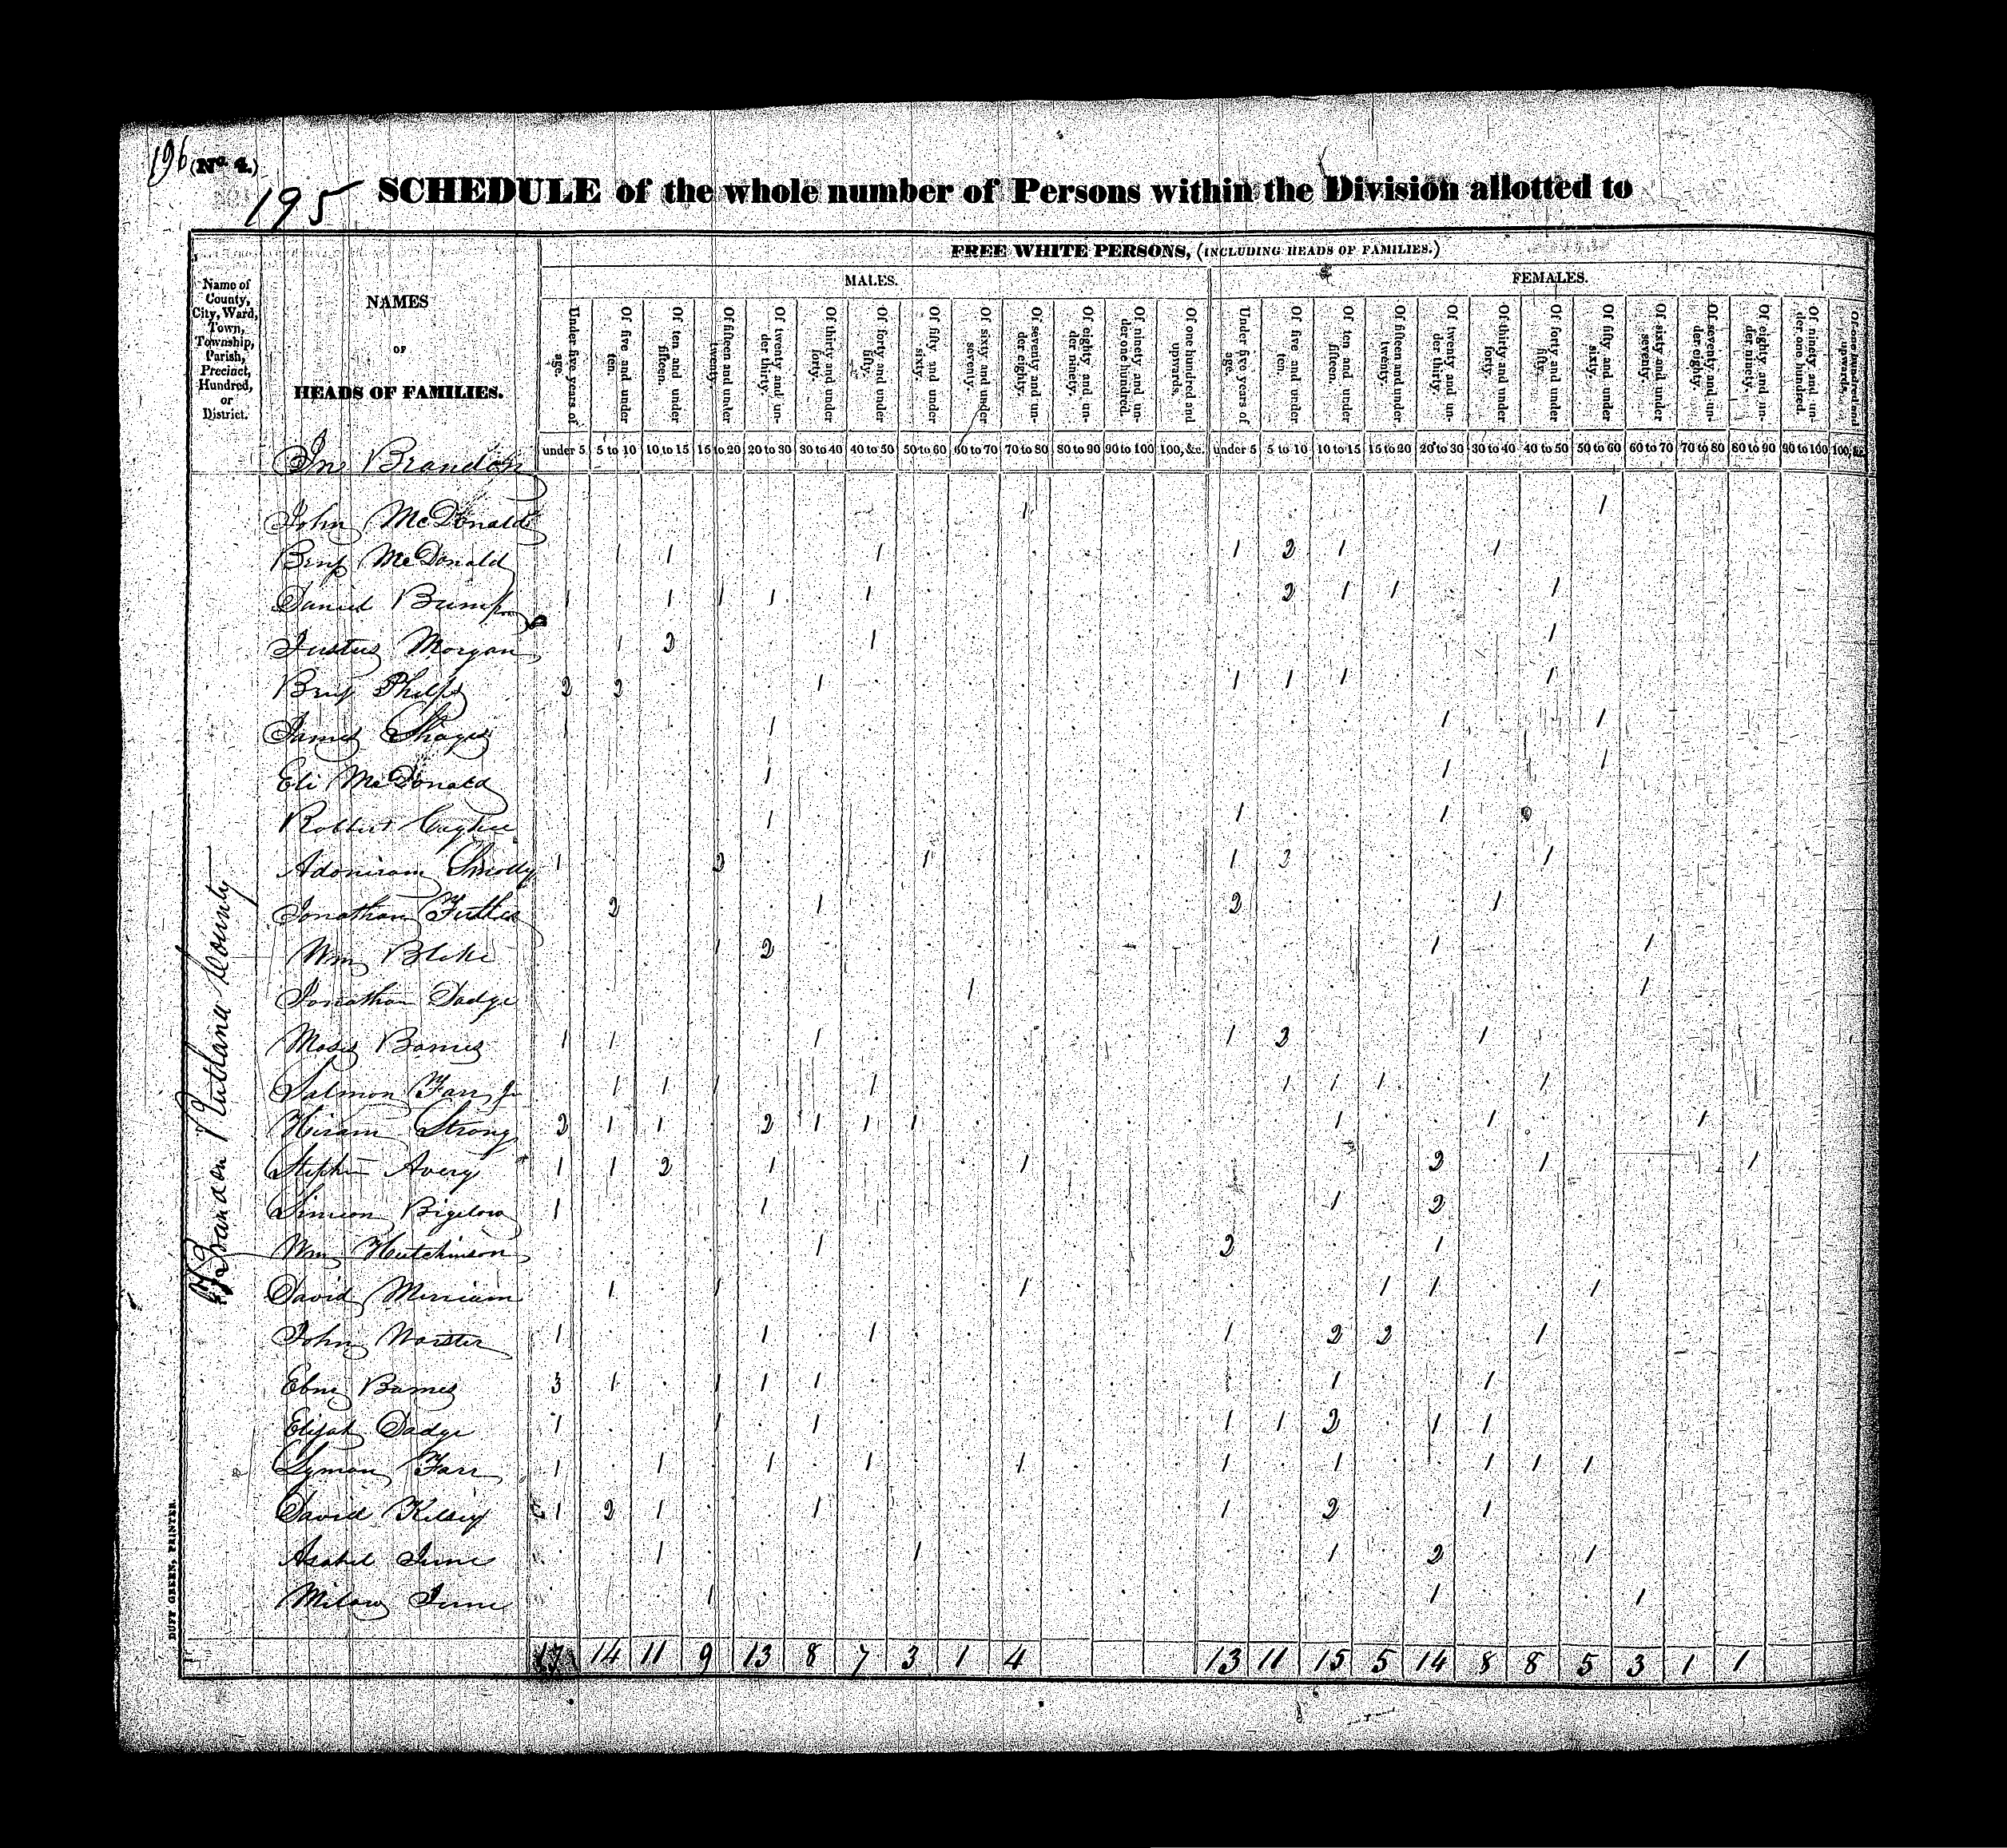 196 (No. 4.)
195
SCHEDULE of the whole number of Persons within the Division allotted to
FREE WHITE PERSONS, (INCLUDING HEADS OF FAMILIES.)
MALES. FEMALES.
Name of County, City, Ward, Town, Township, Parish, Precinct, Hundred, or District.
NAMES
OF
HEADS OF FAMILIES.
Under five years of age. Of five and under ten. Of ten and under fifteen. Of fifteen and under twenty. Of twenty and under thirty. Of thirty and under forty. Of forty and under fifty. Of fifty and under sixty. Of sixty and under seventy. Of seventy and under eighty. Of eighty and under ninety. Of ninety and under one hundred. Of one hundred and upwards. Under five years of age. Of five and under ten. Of ten and under fifteen. Of fifteen and under twenty. Of twenty and under thirty. Of thirty and under forty. Of forty and under fifty. Of fifty and under sixty. Of sixty and under seventy. Of seventy and under eighty. Of eighty and under ninety. Of ninety and under one hundred. Of one hundred and upwards.
under 5 5 to 10 10 to 15 15 to 20 20 to 30 30 to 40 40 to 50 50 to 60 60 to 70 70 to 80 80 to 90 90 to 100 100, &c. under 5 5 to 10 10 to 15 15 to 20 20 to 30 30 to 40 40 to 50 50 to 60 60 to 70 70 to 80 80 to 90 90 to 100 100, &c.
In Brandon
John McDonald 1 1
Benj McDonald 1 1 1 1 2 1 1
Daniel Bump 1 1 1 1 1 2 1 1 1
Justus Morgan 1 2 1 1
Benj Phelps 2 2 1 1 1 1 1
James 1 1 1 1
Eli McDonald 1 1 1
Robert 1 1 1
Adoniram Smolly 1 2 1 1 2 1
Jonathan 2 1 2 1
Wm Blake 1 2 1 1
Jonathan Dodge 1 1
Moses Barnes 1 1 1 1 2 1
Salmon Farr Jr 1 1 1 1 1 1 1 1
Hiram Strong 2 1 1 2 1 1 1 1 1 1
Stephen Avery 1 1 2 1 1 2 1 1
Simeon Bigelow 1 1 1 2
Wm Hutchinson 1 2 1
David Merriam 1 1 1 1 1 1
John Worster 1 1 1 1 2 2 1
Ebnr Barnes 3 1 1 1 1 1 1
Elijah Dodge 1 1 1 1 1 2 1 1
Lyman Farr 1 1 1 1 1 1 1 1 1 1
David Kelsey 1 2 1 1 1 2 1
Asahel June 1 1 1 2 1
Milow June 1 1 1
17 14 11 9 13 8 7 3 1 4 13 11 15 5 14 8 8 5 3 1 1
Brandon Rutland County
DUFF GREEN, PRINTER.